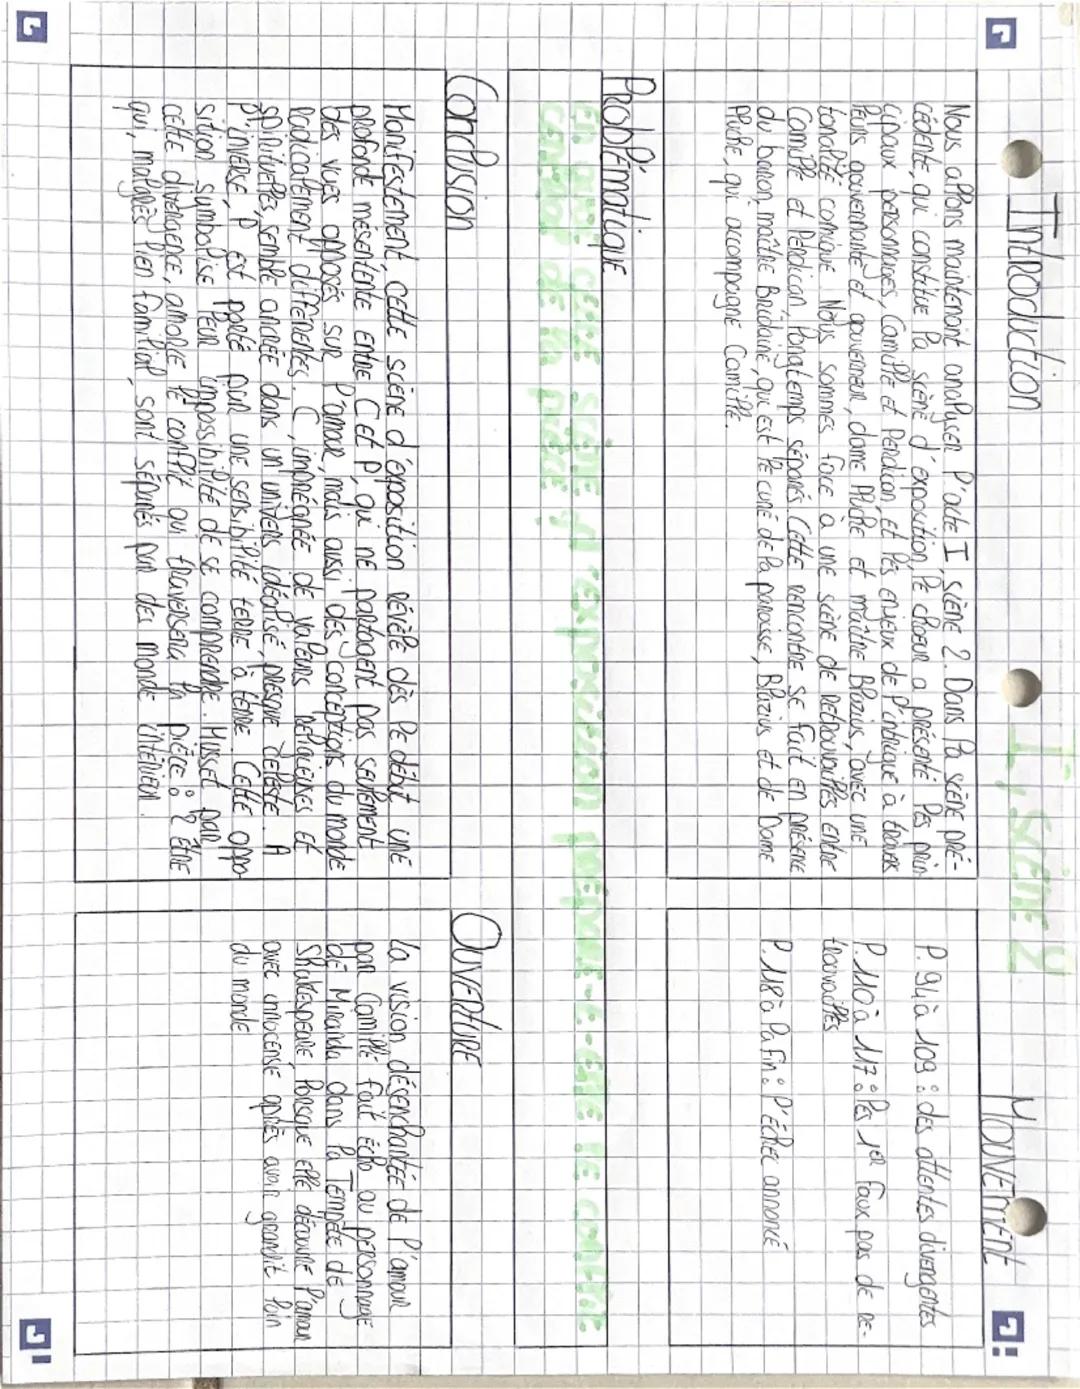 I, Scène 2
Introduction
Nous allons maintenant analyser l'acte I, scène 2. Dans la scène pré-
cédente, qui constitue la scène d'exposition, le choeur a présenté les prin
cipaux personnages, Camille et Perdican, et les enjeux de l'intrigue à travers
leurs gouvernante et gouverneur, dame Pluche et maître Blazius, avec une
tonalité comique. Nous sommes face a une scène de retrouvailles entre
Camille et Perdican, longtemps séparés. Cette rencontre se fait en présence
du baron, maître Bridaine, qui est le curé de la paroisse, Blazius et de Dame
Pluche, qui accompagne Camille.
Mouvement
P. 94 à 109 : des attentes divergentes
P. 110 à 117 : les 1er faux pas de re-
trouvailles
P. 118 à la fin : l'échec annoncé
Problématique
cette scène d'exposition prépare-t-elle le conflit
de la pièce
Conclusion
Manifestement, cette scène d'exposition révèle dès le début une
profonde mésentente entre C et P, qui ne partagent pas seulement
des vues opposés sur l'amour, mais aussi des conceptions du monde
radicalement différentes. C, imprégnée de valeurs religieuses et
spirituelles, semble ancrée dans un univers idéalisé, presque céleste. A
l'inverse, P est porté par une sensibilité terre à terre. Cette oppo-
sition symbolise leur impossibilité de se comprendre. Musset par
cette divergence, amorce le conflit qui traversera la pièce : 2 être
qui, malgrès lien familial, sont séparés par des monde intérieur.
Ouverture
La vision désenchantée de l'amour
par Camille fait écho au personnage
de Miranda dans la Tempête de
Shakespeare lorsque elle découvre l'amour
avec innocense après avoir grandit loin
du monde